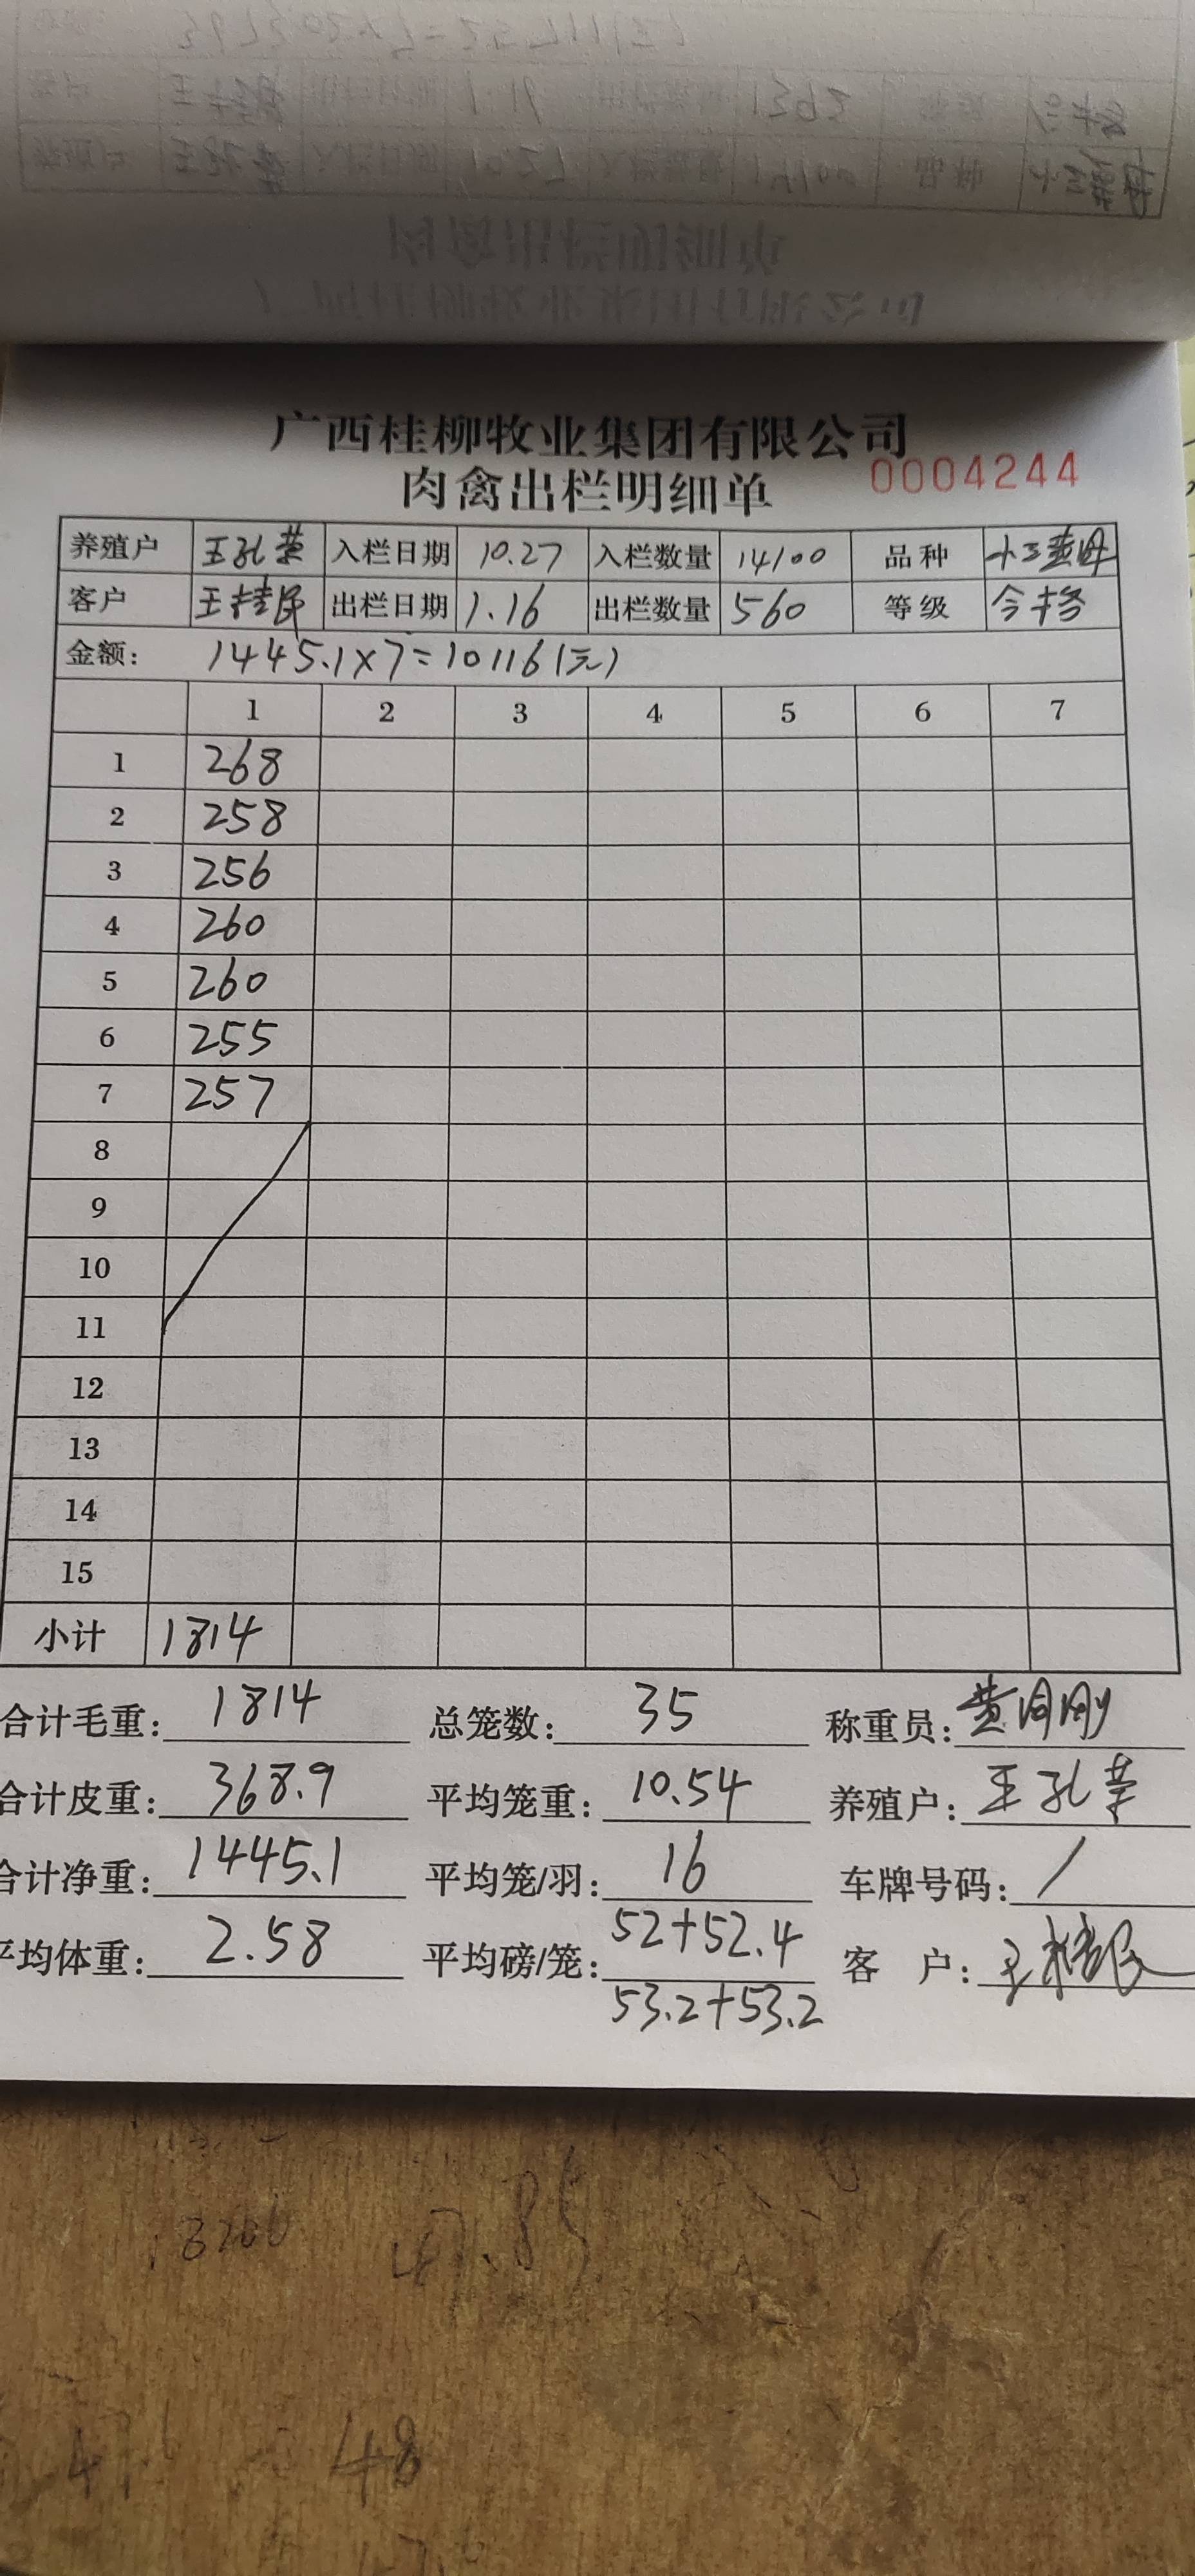 广西桂柳牧业集团有限公司
肉禽出栏明细单 0004244
养殖户 王孔荣 入栏日期 10.27 入栏数量 14100 品种
客户 王桂民 出栏日期 1.16 出栏数量 560 等级 合格
金额: 1445.1×7=10116(元)
1 2 3 4 5 6 7
1 268
2 258
3 256
4 260
5 260
6 255
7 257
8
9
10
11
12
13
14
15
小计 1814
合计毛重: 1814 总笼数: 35 称重员:
合计皮重: 368.9 平均笼重: 10.54 养殖户: 王孔荣
合计净重: 1445.1 平均笼/羽: 16 车牌号码: /
平均体重: 2.58 平均磅/笼: 52+52.4 客 户: 王桂民
53.2+53.2
48